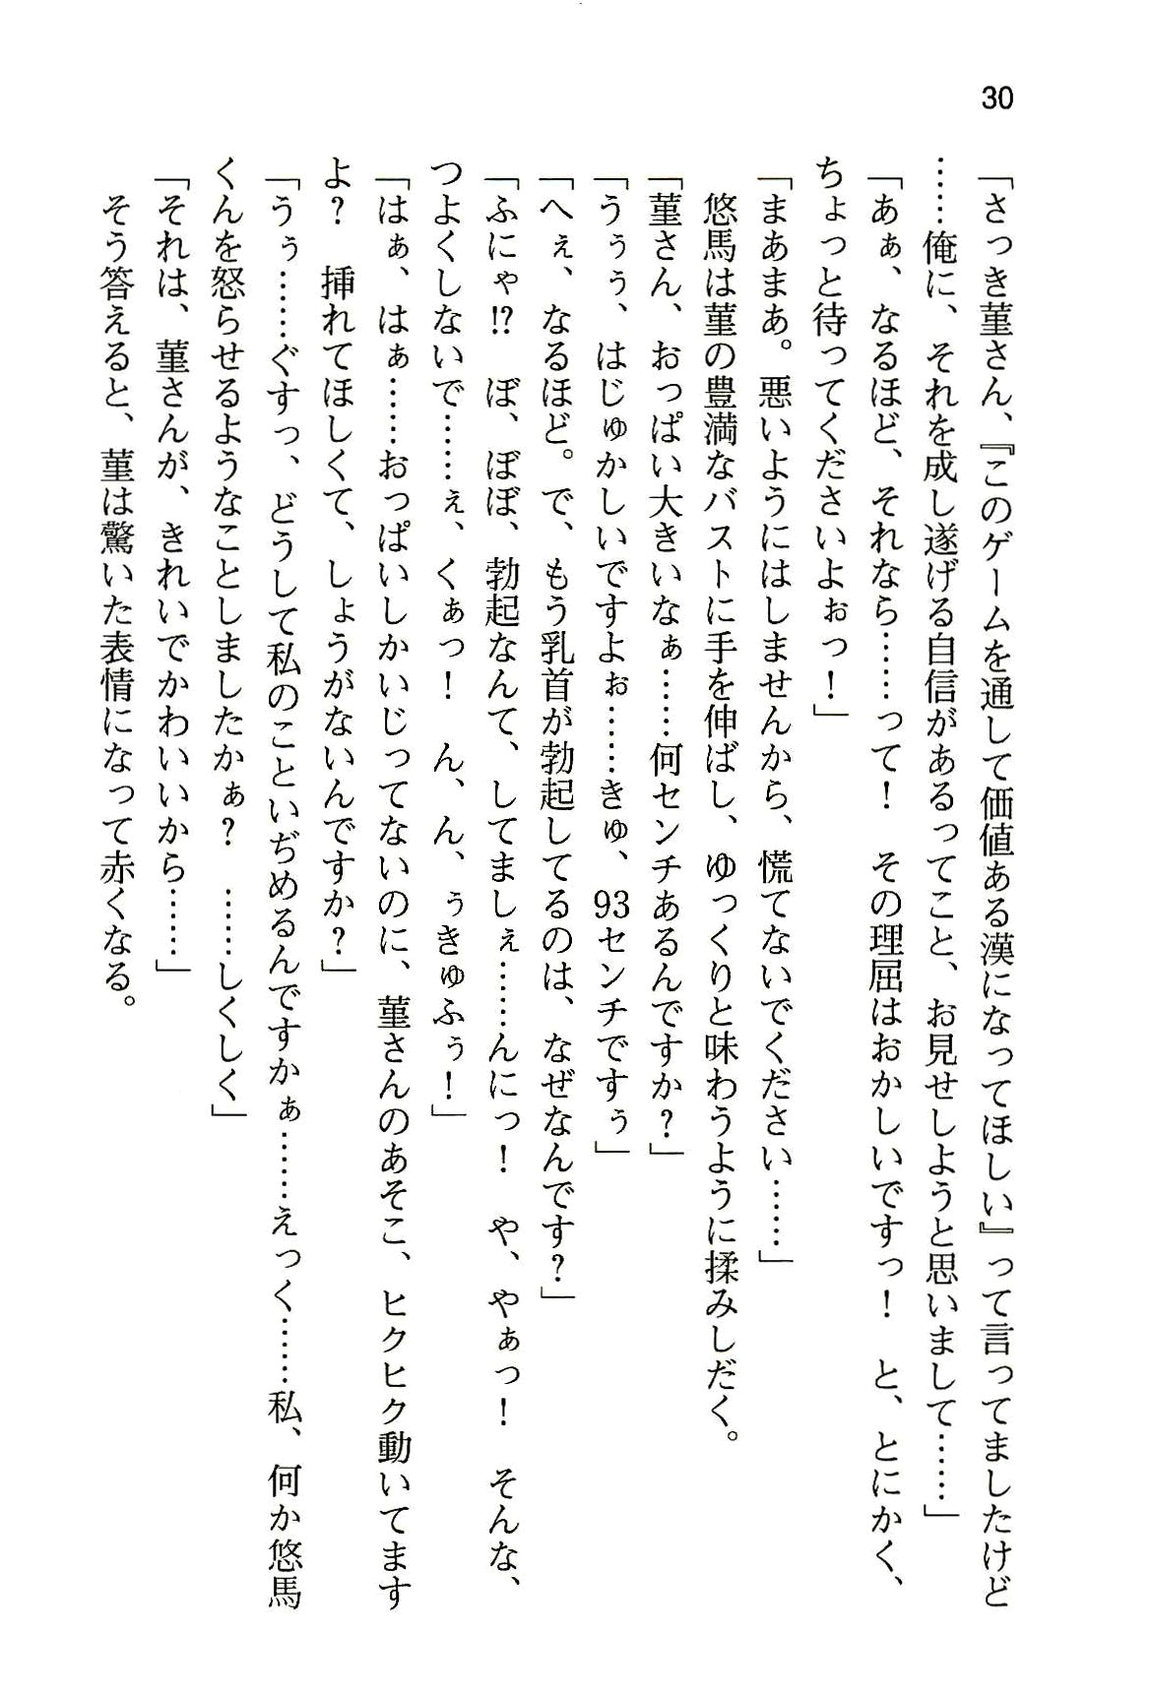 30
「さっき菫さん、『このゲームを通して価値ある漢になってほしい』って言ってましたけど
……俺に、それを成し遂げる自信があるってこと、お見せしようと思いまして……」
「あぁ、なるほど、それなら……って！　その理屈はおかしいですっ！　と、とにかく、
ちょっと待ってくださいよぉっ！」
「まあまあ。悪いようにはしませんから、慌てないでください……」
　悠馬は菫の豊満なバストに手を伸ばし、ゆっくりと味わうように揉みしだく。
「菫さん、おっぱい大きいなぁ……何センチあるんですか？」
「うぅぅ、はじゅかしいですよぉ……きゅ、93センチですぅ」
「へぇ、なるほど。で、もう乳首が勃起してるのは、なぜなんです？」
「ふにゃ!?　ぼ、ぼぼ、勃起なんて、してましぇ……んにっ！　や、やぁっ！　そんな、
つよくしないで……ぇ、くぁっ！　ん、ん、ぅきゅふぅ！」
「はぁ、はぁ……おっぱいしかいじってないのに、菫さんのあそこ、ヒクヒク動いてます
よ？　挿れてほしくて、しょうがないんですか？」
「うぅ……ぐすっ、どうして私のこといぢめるんですかぁ……えっく……私、何か悠馬
くんを怒らせるようなことしましたかぁ？　……しくしく」
「それは、菫さんが、きれいでかわいいから……」
　そう答えると、菫は驚いた表情になって赤くなる。